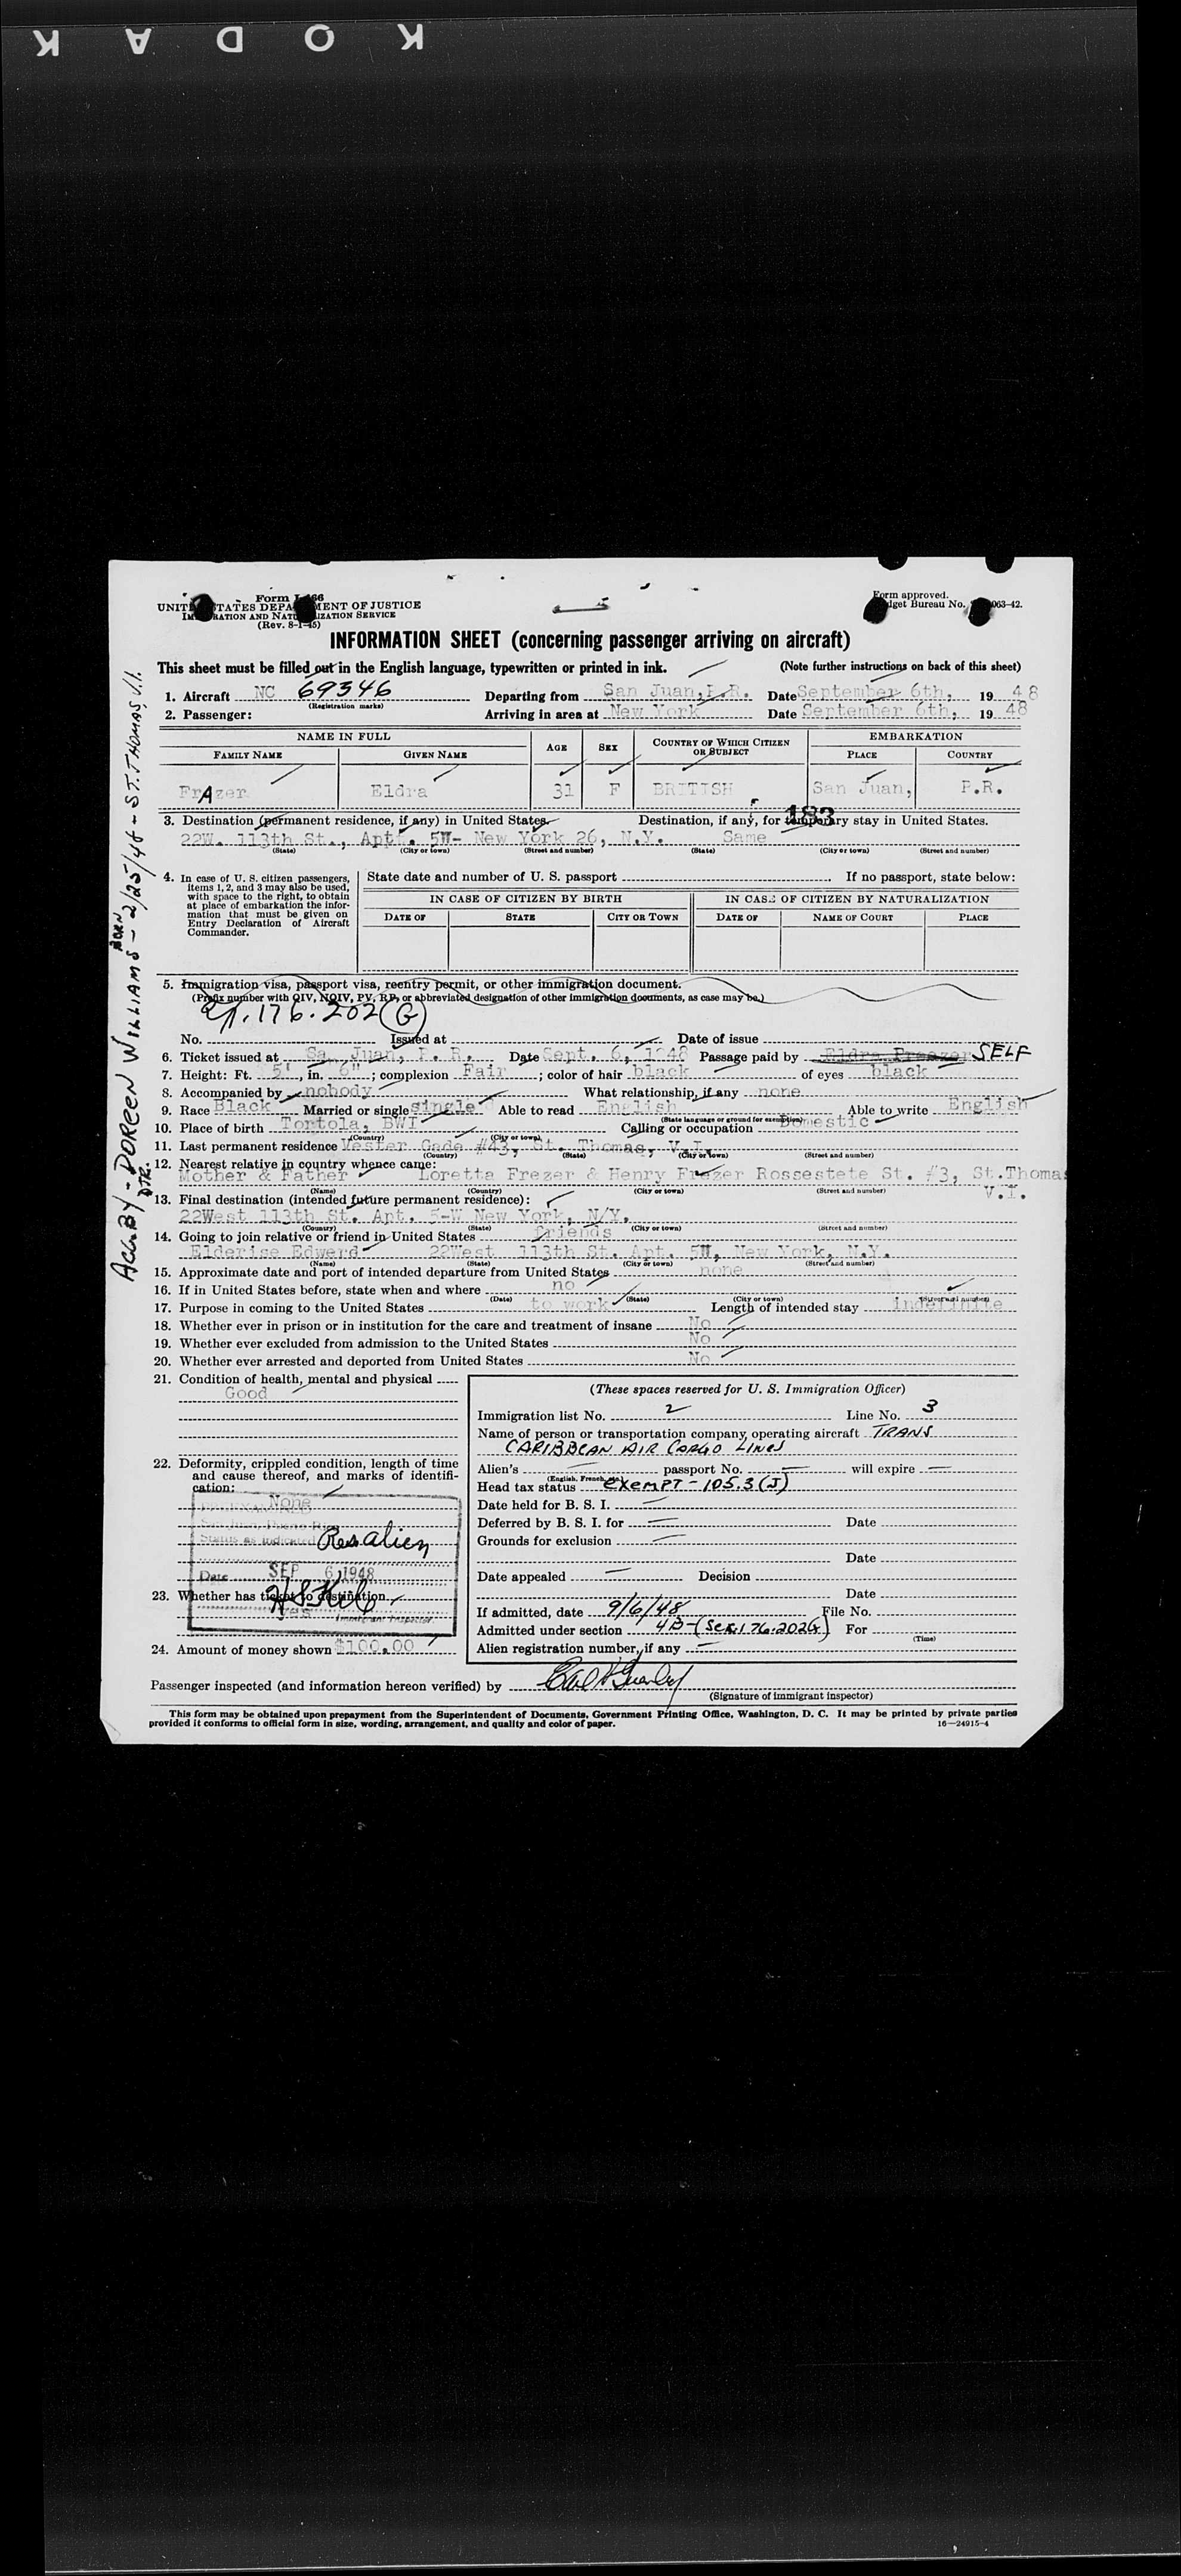 KODAK
Form I-466
UNITED STATES DEPARTMENT OF JUSTICE
IMMIGRATION AND NATURALIZATION SERVICE
(Rev. 8-1-45)
Form approved.
Budget Bureau No. 063-42.
INFORMATION SHEET (concerning passenger arriving on aircraft)
This sheet must be filled out in the English language, typewritten or printed in ink. (Note further instructions on back of this sheet)
1. Aircraft NC 69346 Departing from San Juan, P.R. Date September 6th, 19 48
(Registration marks)
2. Passenger: Arriving in area at New York Date September 6th, 19 48
NAME IN FULL AGE SEX COUNTRY OF WHICH CITIZEN OR SUBJECT EMBARKATION
FAMILY NAME GIVEN NAME PLACE COUNTRY
Frazer Eldra 31 F BRITISH San Juan, P.R.
183
3. Destination (permanent residence, if any) in United States. Destination, if any, for temporary stay in United States.
22W. 113th St., Apt. 5W- New York 26, N.Y. Same
(State) (City or town) (Street and number) (State) (City or town) (Street and number)
4. In case of U. S. citizen passengers, items 1, 2, and 3 may also be used, with space to the right, to obtain at place of embarkation the information that must be given on Entry Declaration of Aircraft Commander.
State date and number of U. S. passport If no passport, state below:
IN CASE OF CITIZEN BY BIRTH IN CASE OF CITIZEN BY NATURALIZATION
DATE OF STATE CITY OR TOWN DATE OF NAME OF COURT PLACE
5. Immigration visa, passport visa, reentry permit, or other immigration document.
(Prefix number with QIV, NQIV, PV, RP, or abbreviated designation of other immigration documents, as case may be.)
176.202 (G)
No. Issued at Date of issue
6. Ticket issued at Sa Juan, P. R. Date Sept. 6, 1948 Passage paid by SELF
7. Height: Ft. 5', in. 6"; complexion Fair; color of hair black of eyes black
8. Accompanied by nobody What relationship, if any none
9. Race Black Married or single single Able to read English Able to write English
(State language or ground for exemption)
10. Place of birth Tortola, BWI Calling or occupation Domestic
(Country) (City or town)
11. Last permanent residence Vester Gade #43, St. Thomas, V.I.
(Country) (State) (City or town) (Street and number)
12. Nearest relative in country whence came:
Mother & Father Loretta Frezer & Henry Frezer Rossestete St. #3, St.Thomas
V.I.
(Name) (Country) (City or town) (Street and number)
13. Final destination (intended future permanent residence):
22West 113th St. Apt. 5-W New York, N/Y.
(Country) (State) (City or town) (Street and number)
14. Going to join relative or friend in United States friends
Elderise Edwerd 22West 113th St. Apt. 5W, New York, N.Y.
(Name) (State) (City or town) (Street and number)
15. Approximate date and port of intended departure from United States none
16. If in United States before, state when and where no
(Date) (State) (City or town) (Street and number)
17. Purpose in coming to the United States to work Length of intended stay indefinite
18. Whether ever in prison or in institution for the care and treatment of insane No
19. Whether ever excluded from admission to the United States No
20. Whether ever arrested and deported from United States No
21. Condition of health, mental and physical
Good
22. Deformity, crippled condition, length of time and cause thereof, and marks of identification:
None
San Juan, Puerto Rico
Status as indicated Res alien
Date SEP 6 1948
23. Whether has ticket to destination
yes Immigrant Inspector
24. Amount of money shown $100.00
(These spaces reserved for U. S. Immigration Officer)
Immigration list No. 2 Line No. 3
Name of person or transportation company operating aircraft TRANS
CARIBBEAN AIR CARGO LINES
Alien's passport No. will expire
(English, French, etc.)
Head tax status exempt - 105.3(J)
Date held for B. S. I.
Deferred by B. S. I. for Date
Grounds for exclusion
Date
Date appealed Decision
Date
If admitted, date 9/6/48 File No.
Admitted under section 4B-(Sec. 176.202G) For
(Time)
Alien registration number, if any
Passenger inspected (and information hereon verified) by
(Signature of immigrant inspector)
This form may be obtained upon prepayment from the Superintendent of Documents, Government Printing Office, Washington, D. C. It may be printed by private parties
provided it conforms to official form in size, wording, arrangement, and quality and color of paper. 16—24915-4
Acc. BY - DOREEN WILLIAMS - BORN 2/25/46 - ST. THOMAS, V.I.
DTR.